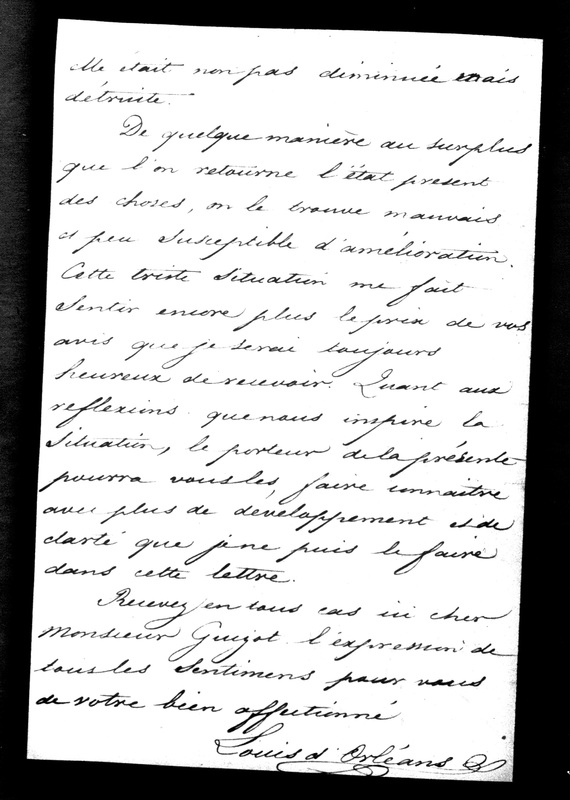 elle était non pas diminuée mais
détruite.
De quelque manière au surplus
que l'on retourne l'état present
des choses, on le trouve mauvais
et peu susceptible d'amélioration.
Cette triste situation me fait
sentir encore plus le prix de vos
avis que je serai toujours
heureux de recevoir. Quant aux
reflexions que nous inspire la
situation, le porteur de la présente
pourra vous les faire connaître
avec plus de développement et de
clarté que je ne puis le faire
dans cette lettre.
Recevez en tous cas ici cher
Monsieur Guizot l'expression de
tous les sentimens pour vous
de votre bien affectionné
Louis d'Orléans